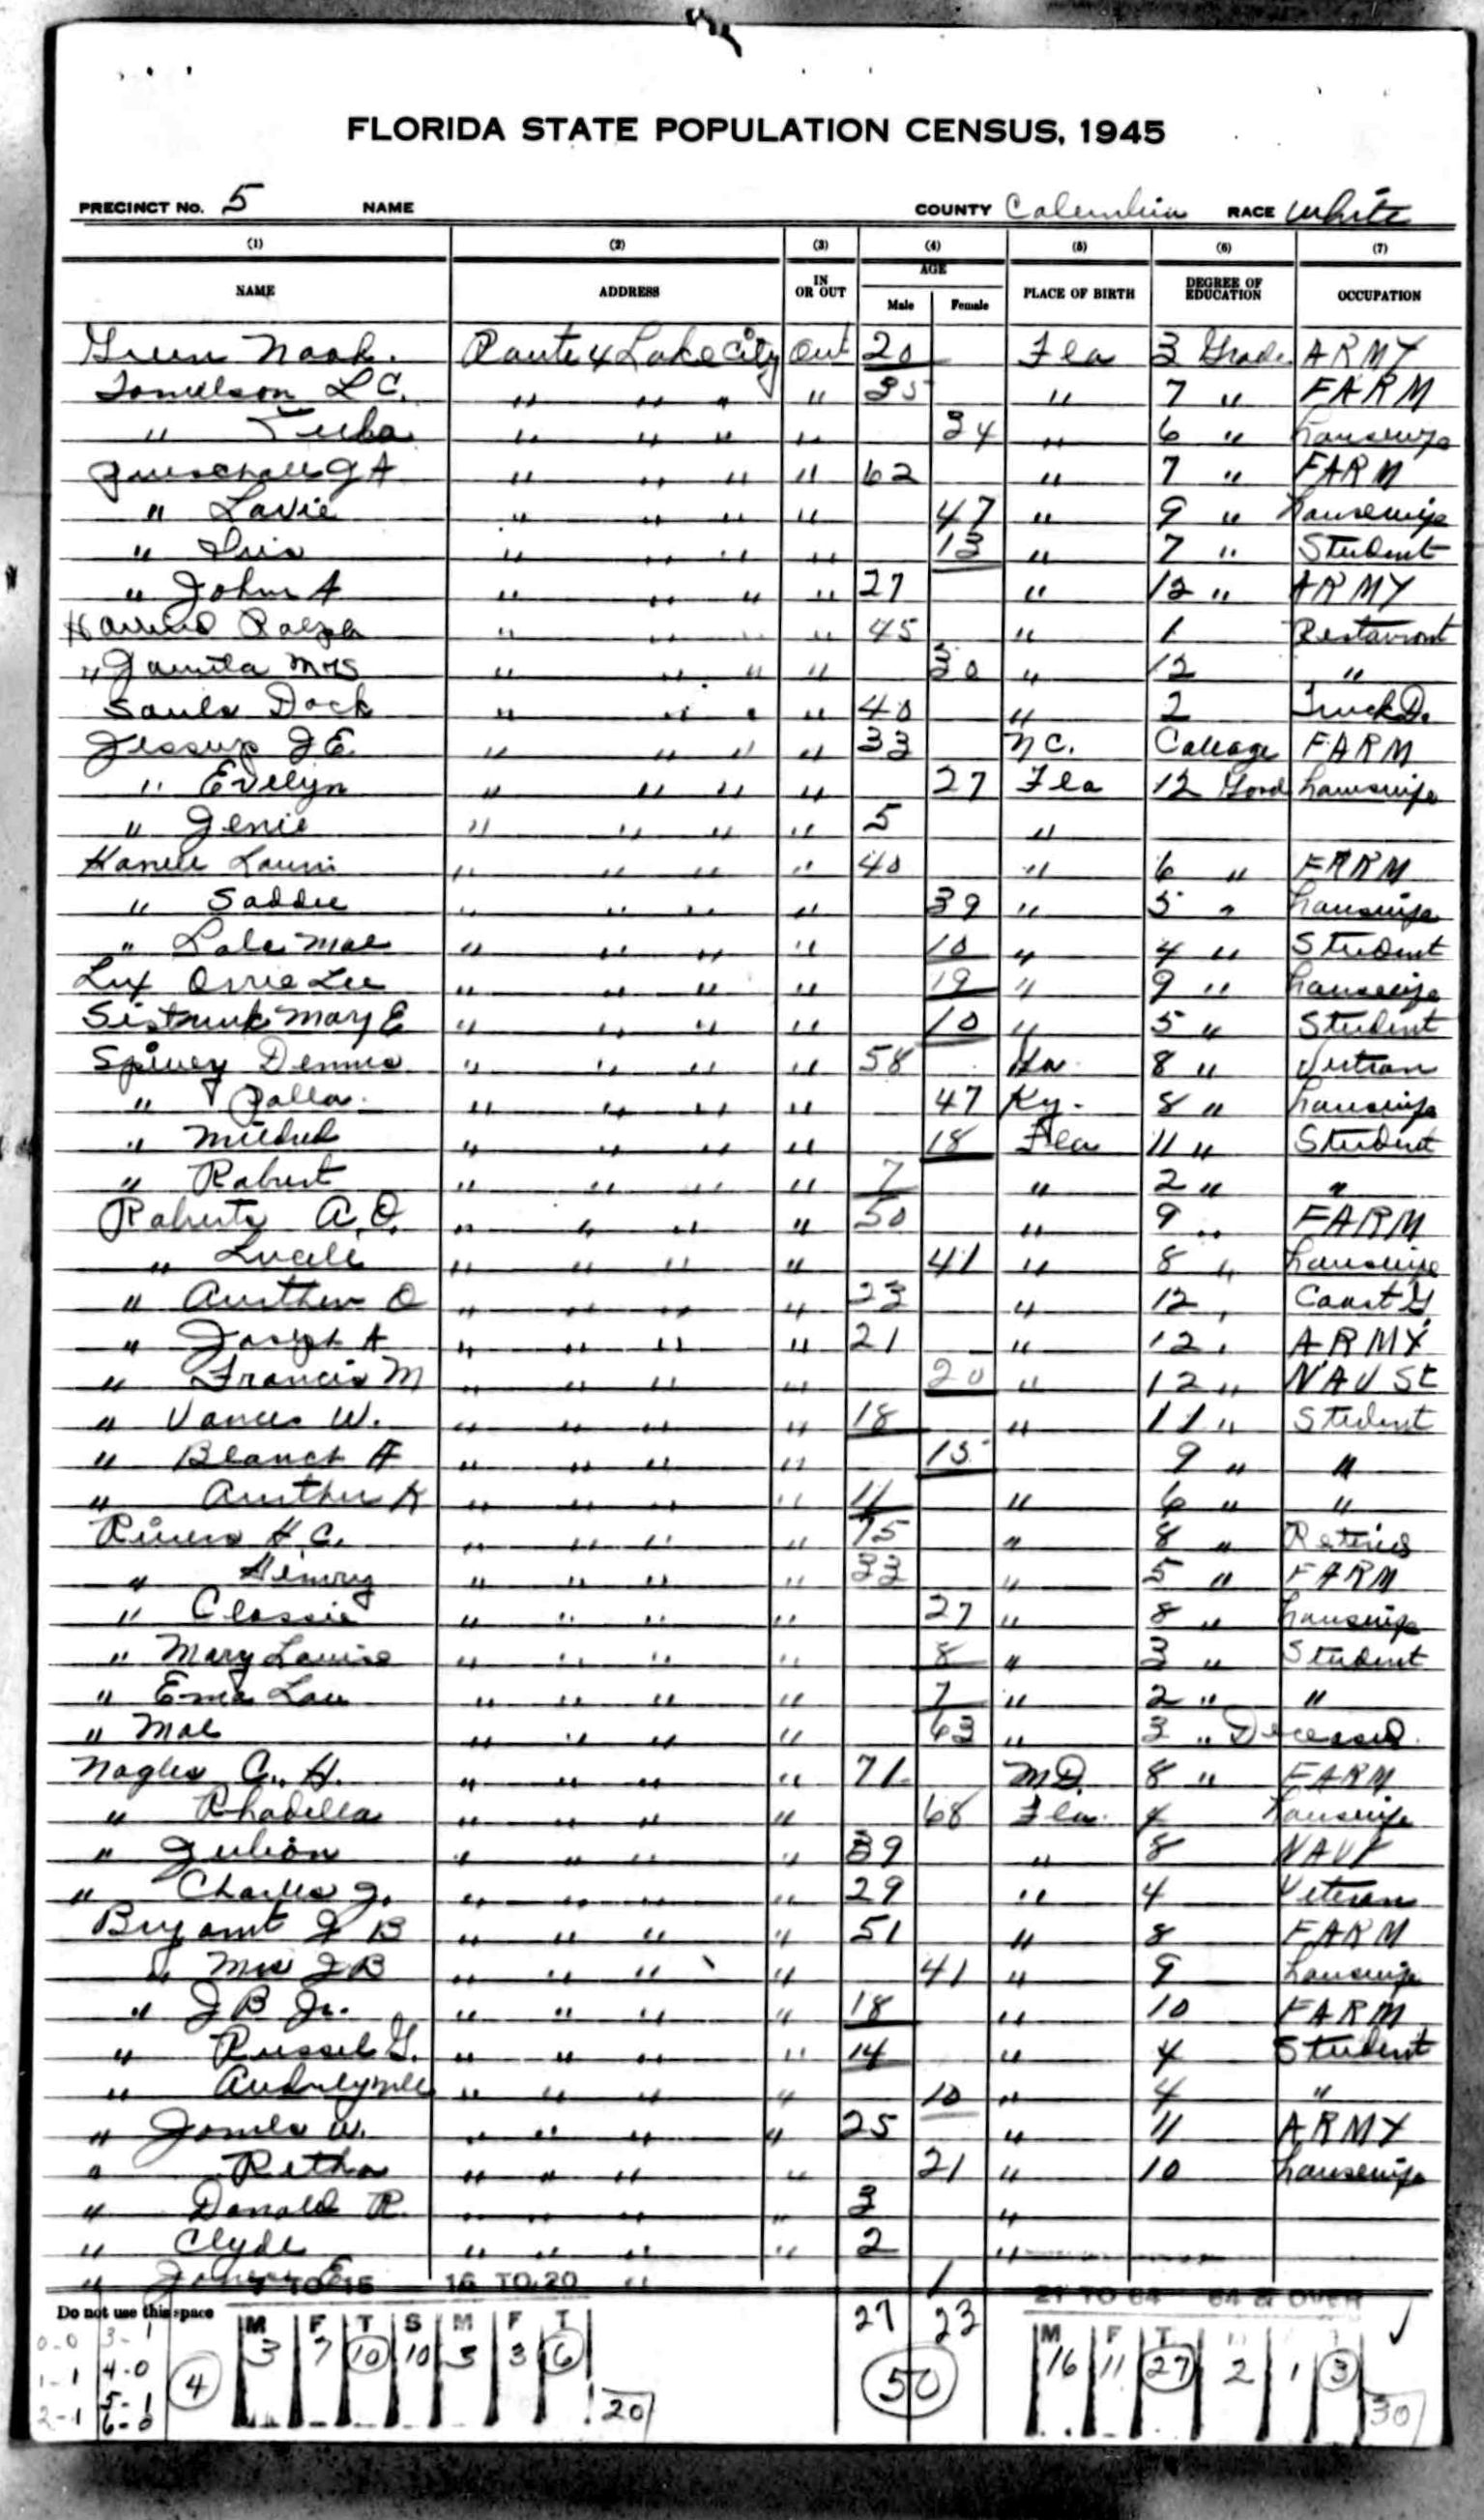 FLORIDA STATE POPULATION CENSUS, 1945
PRECINCT No. 5 NAME COUNTY Columbia RACE White
(1) (2) (3) (4) (5) (6) (7)
NAME ADDRESS IN OR OUT AGE Male Female PLACE OF BIRTH DEGREE OF EDUCATION OCCUPATION
Green Noah. Route 4 Lake City Out 20 Fla 3 Grade ARMY
L C. " " " " 35 " 7 " FARM
" " " " " 34 " 6 " housewife
G A " " " " 62 " 7 " FARM
" Lavie " " " " 47 " 9 " housewife
" Iris " " " " 13 " 7 " Student
" John A " " " " 27 " 12 " ARMY
Ralph " " " " 45 " 1 Restauront
" Mrs " " " " 30 " 12 "
Sauls Dock " " " " 40 " 2 Truck D.
Jessup J E. " " " " 33 N C. Collage FARM
" Evelyn " " " " 27 Fla 12 housewife
" Genie " " " " 5 "
" " " " 40 " 6 " FARM
" Saddie " " " " 39 " 5 " housewife
" Mae " " " " 10 " 4 " Student
Lee " " " " 19 " 9 " housewife
Sistrunk Mary E " " " " 10 " 5 " Student
Spivey Dennis " " " " 58 8 "
" " " " " 47 Ky. 8 " housewife
" Mildred " " " " 18 Fla 11 " Student
" Robert " " " " 7 " 2 " "
Roberts A. O. " " " " 50 " 9 " FARM
" Lucile " " " " 41 " 8 " housewife
" O " " " " 23 " 12 " Coast G.
" Joseph A " " " " 21 " 12 " ARMY
" Francis M " " " " 20 " 12 " NAV St
" W. " " " " 18 " 11 " Student
" Blanch A " " " " 15 9 " "
" K " " " " 11 " 6 " "
Rivers H C. " " " " 75 " 8 " Retired
" Henry " " " " 33 " 5 " FARM
" Classie " " " " 27 " 8 " housewife
" Mary Louise " " " " 8 " 3 " Student
" Lou " " " " 7 " 2 " "
" Mae " " " " 63 " 3 " Decessed
Nagles C. H. " " " " 71 MD. 8 " FARM
" Rhadella " " " " 68 Fla. 4 housewife
" Julian " " " " 39 " 8 NAVY
" Charles J. " " " " 29 " 4 Veteran
Bryant J B " " " " 51 " 8 FARM
" Mrs J B " " " " 41 " 9 housewife
" J B Jr. " " " " 18 " 10 FARM
" Russel G. " " " " 14 " 4 Student
" " " " " 10 " 4 "
" James W. " " " " 25 " 11 ARMY
" Retha " " " " 21 " 10 housewife
" Donald R. " " " " 3 "
" Clyde " " " " 2 "
" " 1
TO 15 16 TO 20 21 TO 64 64 & OVER
Do not use this space
M F T S M F T 27 23 M F T
0-0 3-1 3 7 10 10 3 3 6 16 11 27 2 1 3
1-1 4-0 4 50
2-1 5-1 20 30
6-0